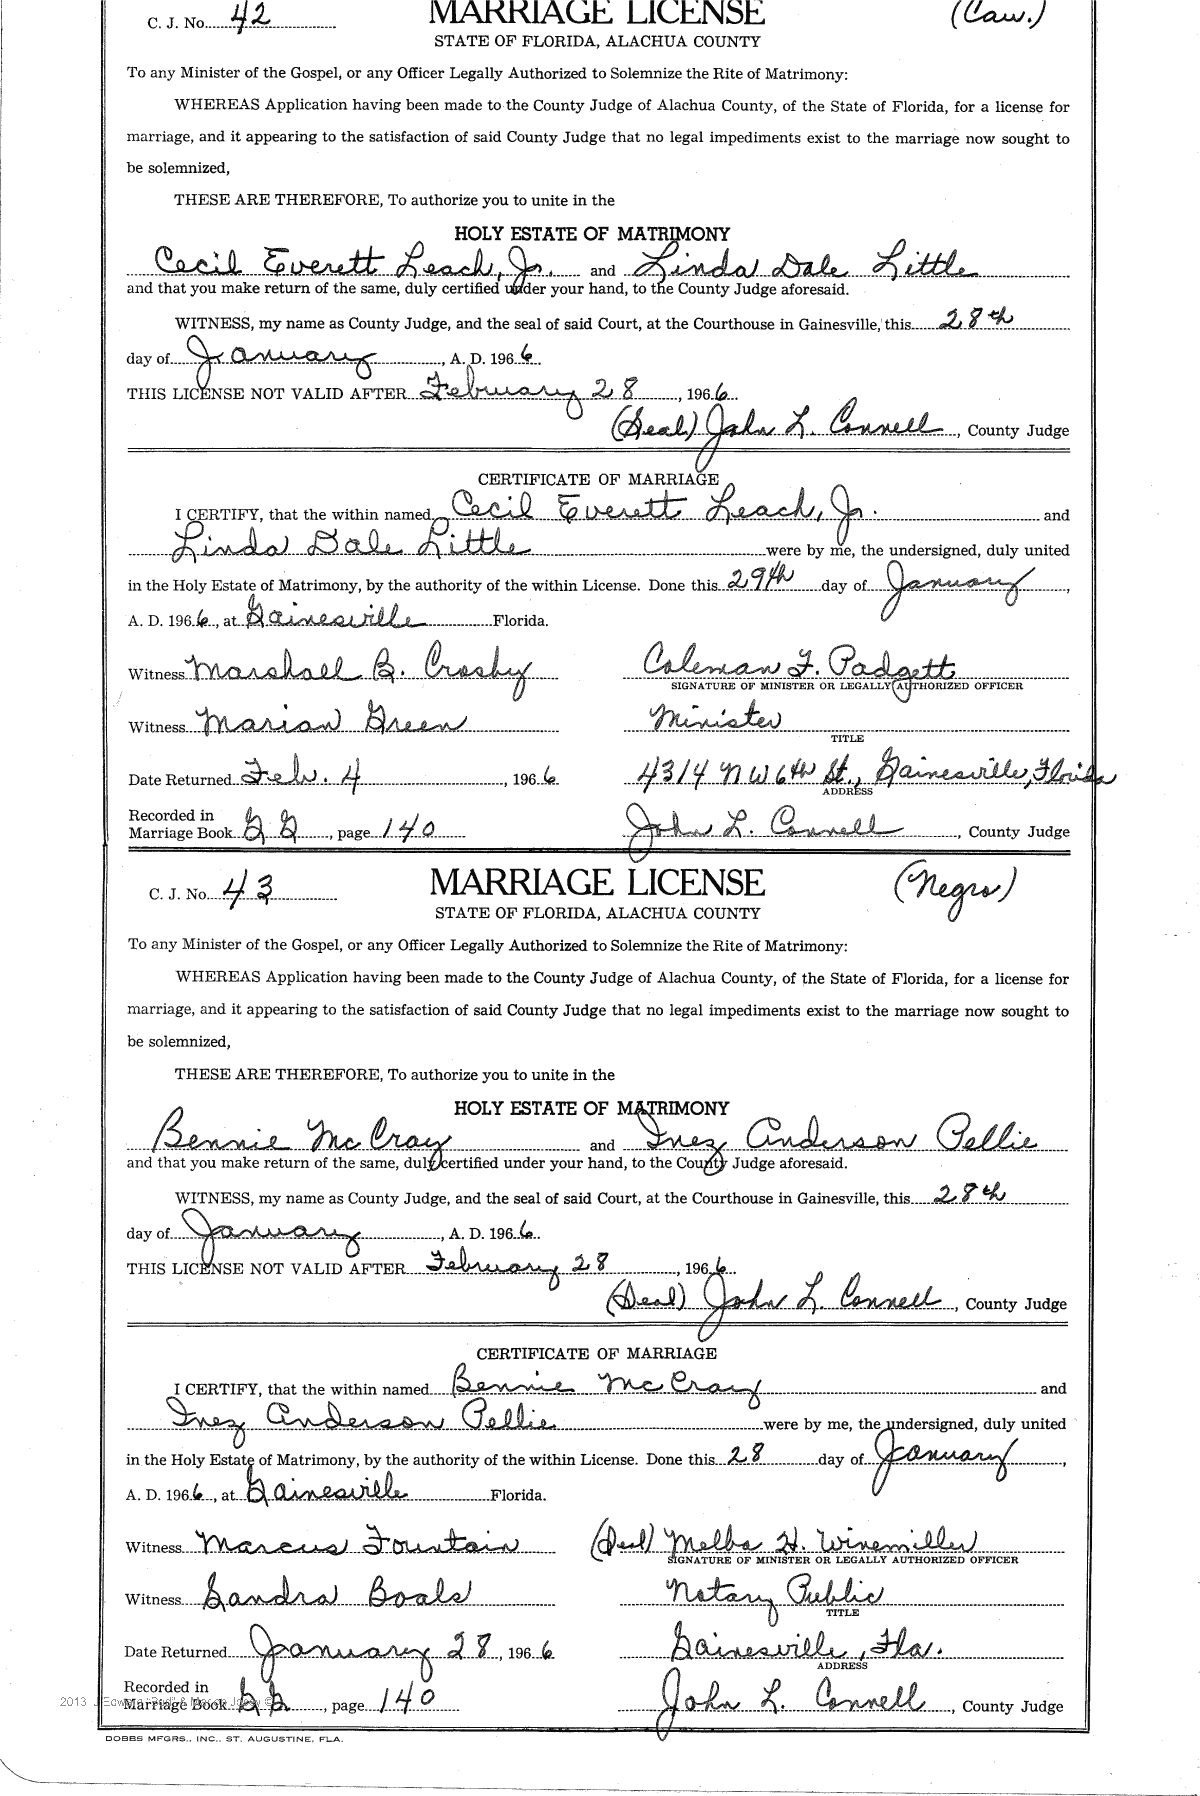 C. J. No. 42 MARRIAGE LICENSE (Cau.)
STATE OF FLORIDA, ALACHUA COUNTY
To any Minister of the Gospel, or any Officer Legally Authorized to Solemnize the Rite of Matrimony:
WHEREAS Application having been made to the County Judge of Alachua County, of the State of Florida, for a license for
marriage, and it appearing to the satisfaction of said County Judge that no legal impediments exist to the marriage now sought to
be solemnized,
THESE ARE THEREFORE, To authorize you to unite in the
HOLY ESTATE OF MATRIMONY
Cecil Everett Leach, Jr. and Linda Dale Little
and that you make return of the same, duly certified under your hand, to the County Judge aforesaid.
WITNESS, my name as County Judge, and the seal of said Court, at the Courthouse in Gainesville, this 28th
day of January, A. D. 1966.
THIS LICENSE NOT VALID AFTER February 28, 1966.
(Seal) John L. Connell, County Judge
CERTIFICATE OF MARRIAGE
I CERTIFY, that the within named Cecil Everett Leach, Jr. and
Linda Dale Little were by me, the undersigned, duly united
in the Holy Estate of Matrimony, by the authority of the within License. Done this 29th day of January,
A. D. 1966, at Gainesville Florida.
Witness Marshall B. Crosby Coleman F. Padgett
SIGNATURE OF MINISTER OR LEGALLY AUTHORIZED OFFICER
Witness Marian Green Minister
TITLE
Date Returned Feb. 4, 1966 4314 NW 6th St., Gainesville, Florida
ADDRESS
Recorded in
Marriage Book GG, page 140 John L. Connell, County Judge
C. J. No. 43 MARRIAGE LICENSE (Negro)
STATE OF FLORIDA, ALACHUA COUNTY
To any Minister of the Gospel, or any Officer Legally Authorized to Solemnize the Rite of Matrimony:
WHEREAS Application having been made to the County Judge of Alachua County, of the State of Florida, for a license for
marriage, and it appearing to the satisfaction of said County Judge that no legal impediments exist to the marriage now sought to
be solemnized,
THESE ARE THEREFORE, To authorize you to unite in the
HOLY ESTATE OF MATRIMONY
Bennie McCray and Inez Anderson Pellie
and that you make return of the same, duly certified under your hand, to the County Judge aforesaid.
WITNESS, my name as County Judge, and the seal of said Court, at the Courthouse in Gainesville, this 28th
day of January, A. D. 1966.
THIS LICENSE NOT VALID AFTER February 28, 1966.
(Seal) John L. Connell, County Judge
CERTIFICATE OF MARRIAGE
I CERTIFY, that the within named Bennie McCray and
Inez Anderson Pellie were by me, the undersigned, duly united
in the Holy Estate of Matrimony, by the authority of the within License. Done this 28 day of January,
A. D. 1966, at Gainesville Florida.
Witness Marcus Fountain (Seal) Melba H. Winemiller
SIGNATURE OF MINISTER OR LEGALLY AUTHORIZED OFFICER
Witness Sandra Boals Notary Public
TITLE
Date Returned January 28, 1966 Gainesville, Fla.
ADDRESS
Recorded in
Marriage Book GG, page 140 John L. Connell, County Judge
2013
DOBBS MFGRS., INC., ST. AUGUSTINE, FLA.